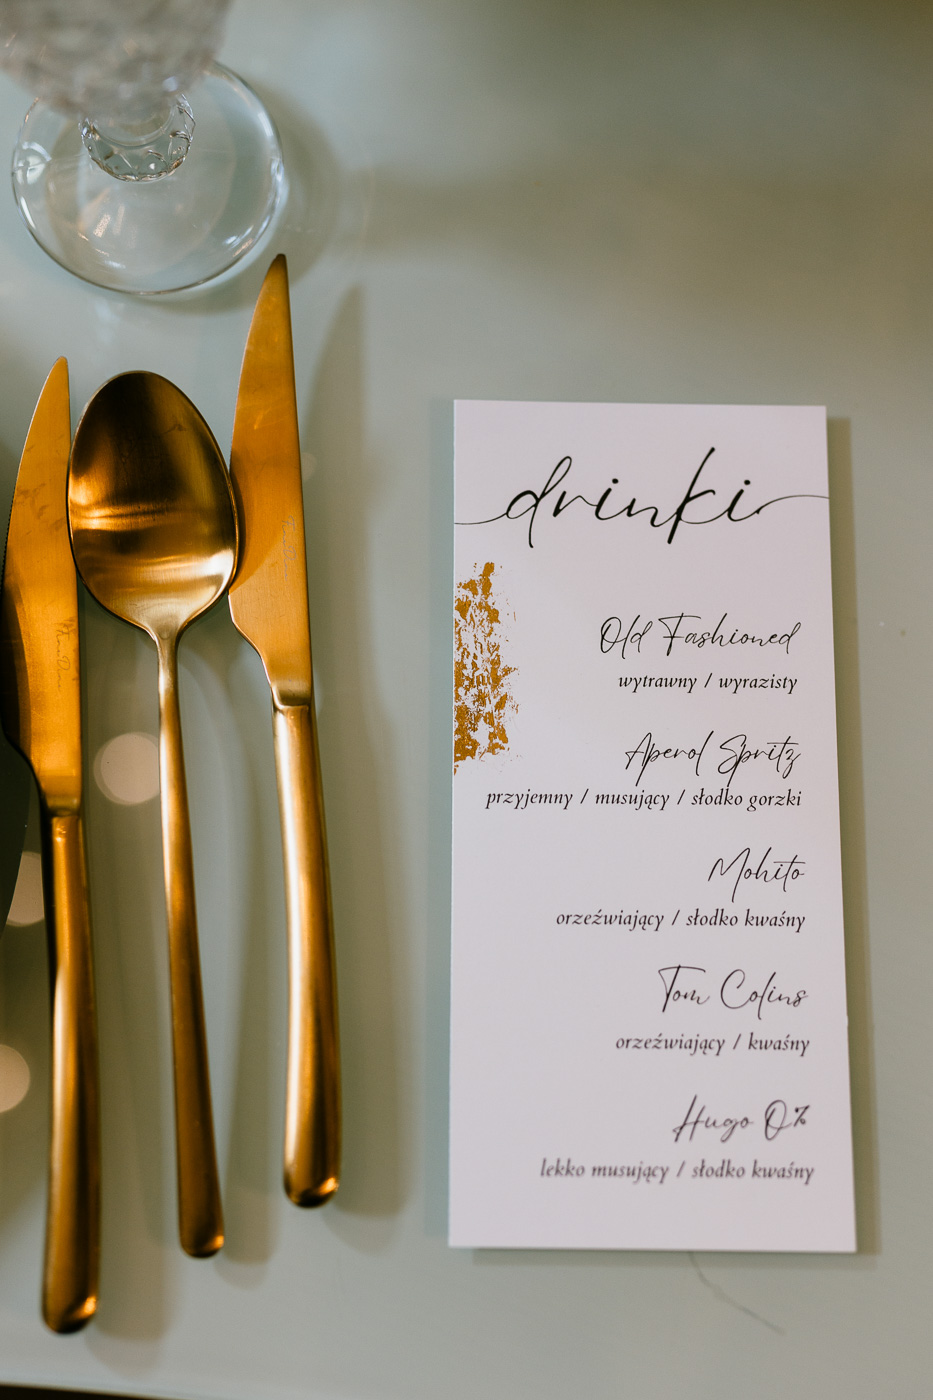 drinki
Old Fashioned
wytrawny / wyrazisty
Aperol Spritz
przyjemny / musujący / słodko gorzki
Mohito
orzeźwiający / słodko kwaśny
Tom Colins
orzeźwiający / kwaśny
Hugo 0%
lekko musujący / słodko kwaśny